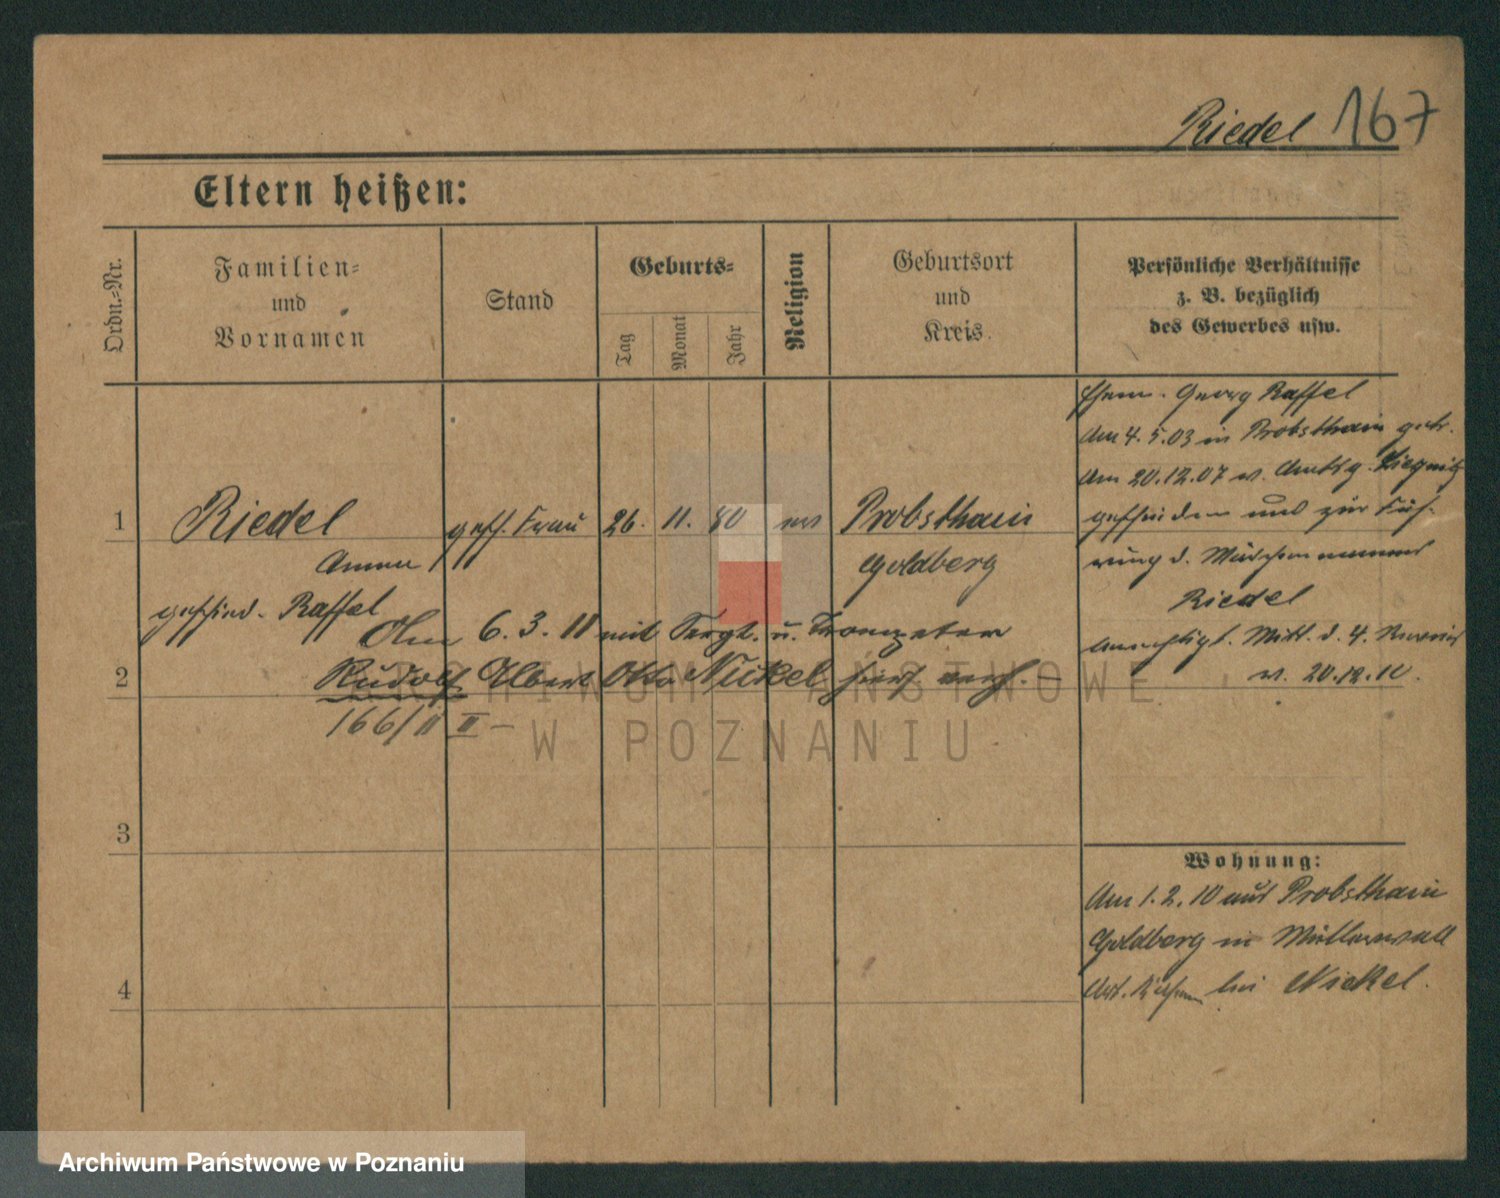 Riedel 167
Eltern heißen:
Ordn.=Nr.
Familien=
und
Vornamen
Stand
Geburts=
Tag
Monat
Jahr
Religion
Geburtsort
und
Kreis.
Persönliche Verhältnisse
z. B. bezüglich
des Gewerbes usw.
Ehem. Georg Raffel
Am 4. 5. 03 in Probsthain getr.
Am 20.12.07 v. Amtsg. Liegnitz
geschieden und zur Füh-
rung d. Mädchennamens
Riedel
berechtigt. Mitt. d. 4. Reviers
v. 20.12.10.
1 Riedel gesch. Frau 26. 11. 80 ev Probsthain
Anna Goldberg
geschied. Raffel
Am 6. 3. 11 mit Sergt. u. Trompeter
2 Rudolf Albert Otto Nickel hier verh. —
166/11 II —
3
4
Wohnung:
Am 1. 2. 10 aus Probsthain
Goldberg in
bei Nickel.
ARCHIWUM PAŃSTWOWE
W POZNANIU
Archiwum Państwowe w Poznaniu